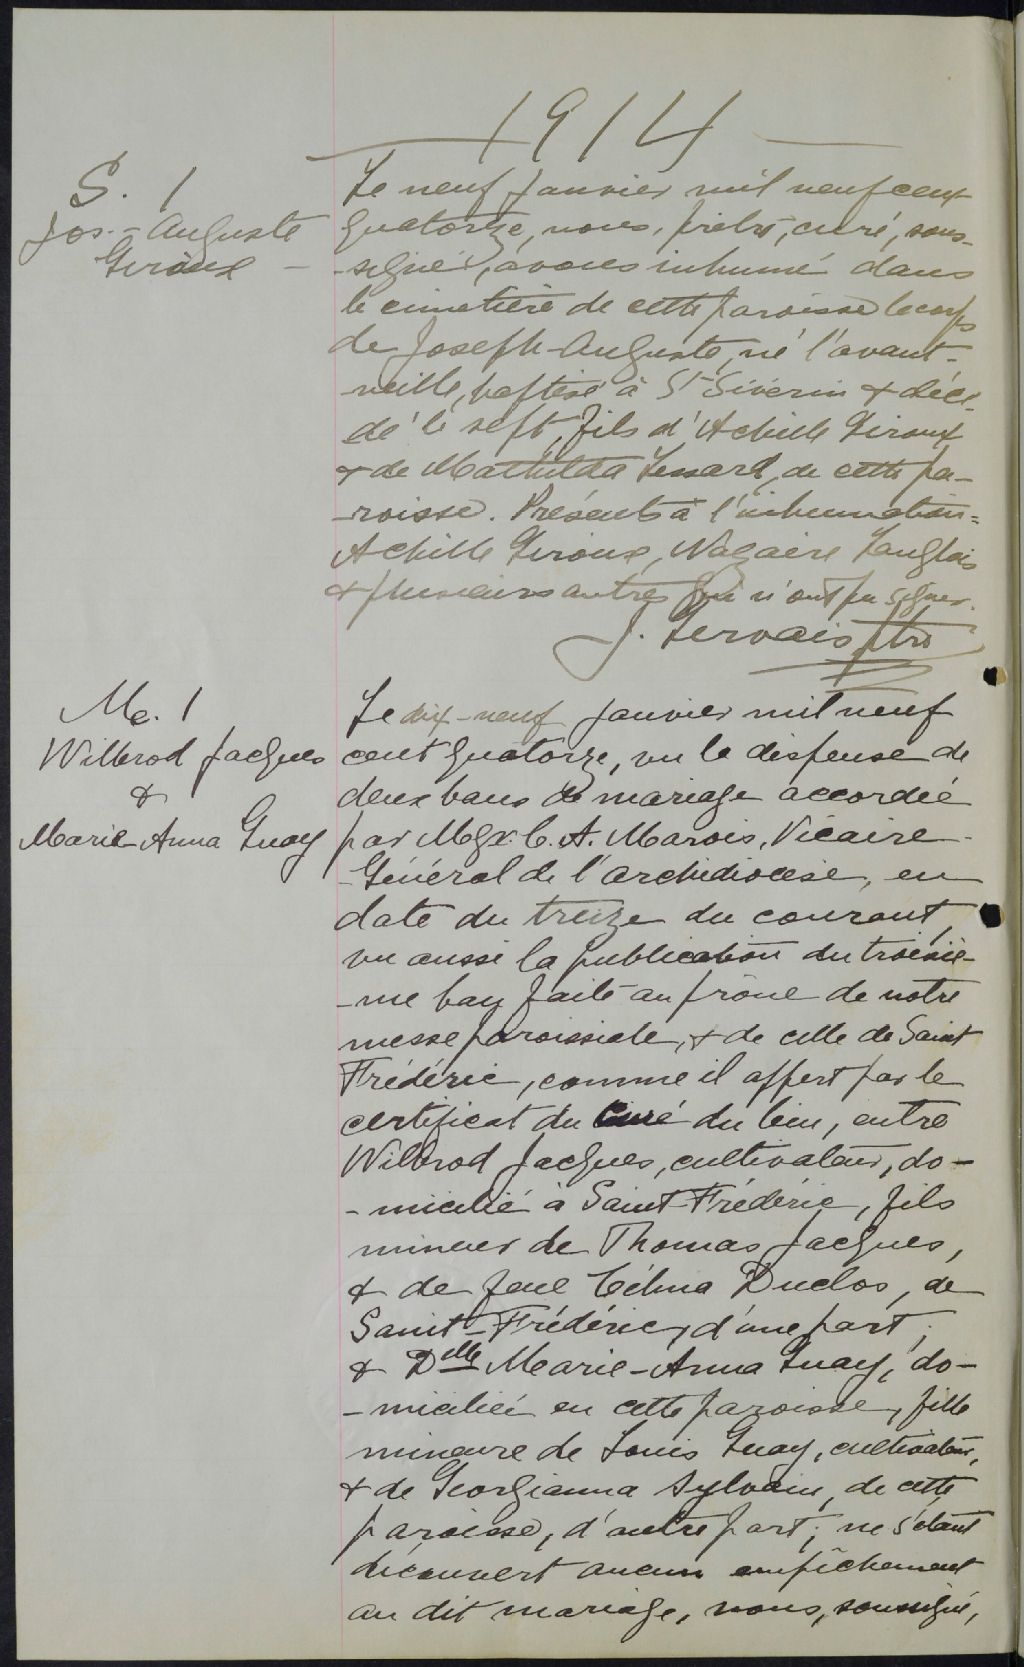 1914
S. 1
Jos.-Auguste
Giroux -
Le neuf janvier mil neuf cent
quatorze, nous, prêtre, curé, sous-
-signé, avons inhumé dans
le cimetière de cette paroisse le corps
de Joseph-Auguste, né l'avant-
-veille, baptisé à St-Séverin & décé-
dé le sept, fils d'Achille Giroux
& de Mathilda Lessard, de cette pa-
-roisse. Présents à l'inhumation=
Achille Giroux, Nazaire Langlois
& plusieurs autres qui n'ont pu signer.
J. Gervais ptre
M. 1
Wilbrod Jacques
&
Marie Anna Guay
Le dix-neuf janvier mil neuf
cent quatorze, vu la dispense de
deux bans de mariage accordée
par Mgr. C. A. Marois, Vicaire-
-Général de l'archidiocèse, en
date du treize du courant,
vu aussi la publication du troisiè-
-me ban faite au prône de notre
messe paroissiale, & de celle de Saint
Frédéric, comme il appert par le
certificat du curé du lieu, entre
Wilbrod Jacques, cultivateur, do-
-micilié à Saint-Frédéric, fils
mineur de Thomas Jacques,
& de feue Célina Duclos, de
Saint-Frédéric, d'une part;
& Dlle Marie-Anna Guay, do-
-miciliée en cette paroisse, fille
mineure de Louis Guay, cultivateur,
& de Georgianna Sylvain, de cette
paroisse, d'autre part; ne s'étant
découvert aucun empêchement
au dit mariage, nous, soussigné,